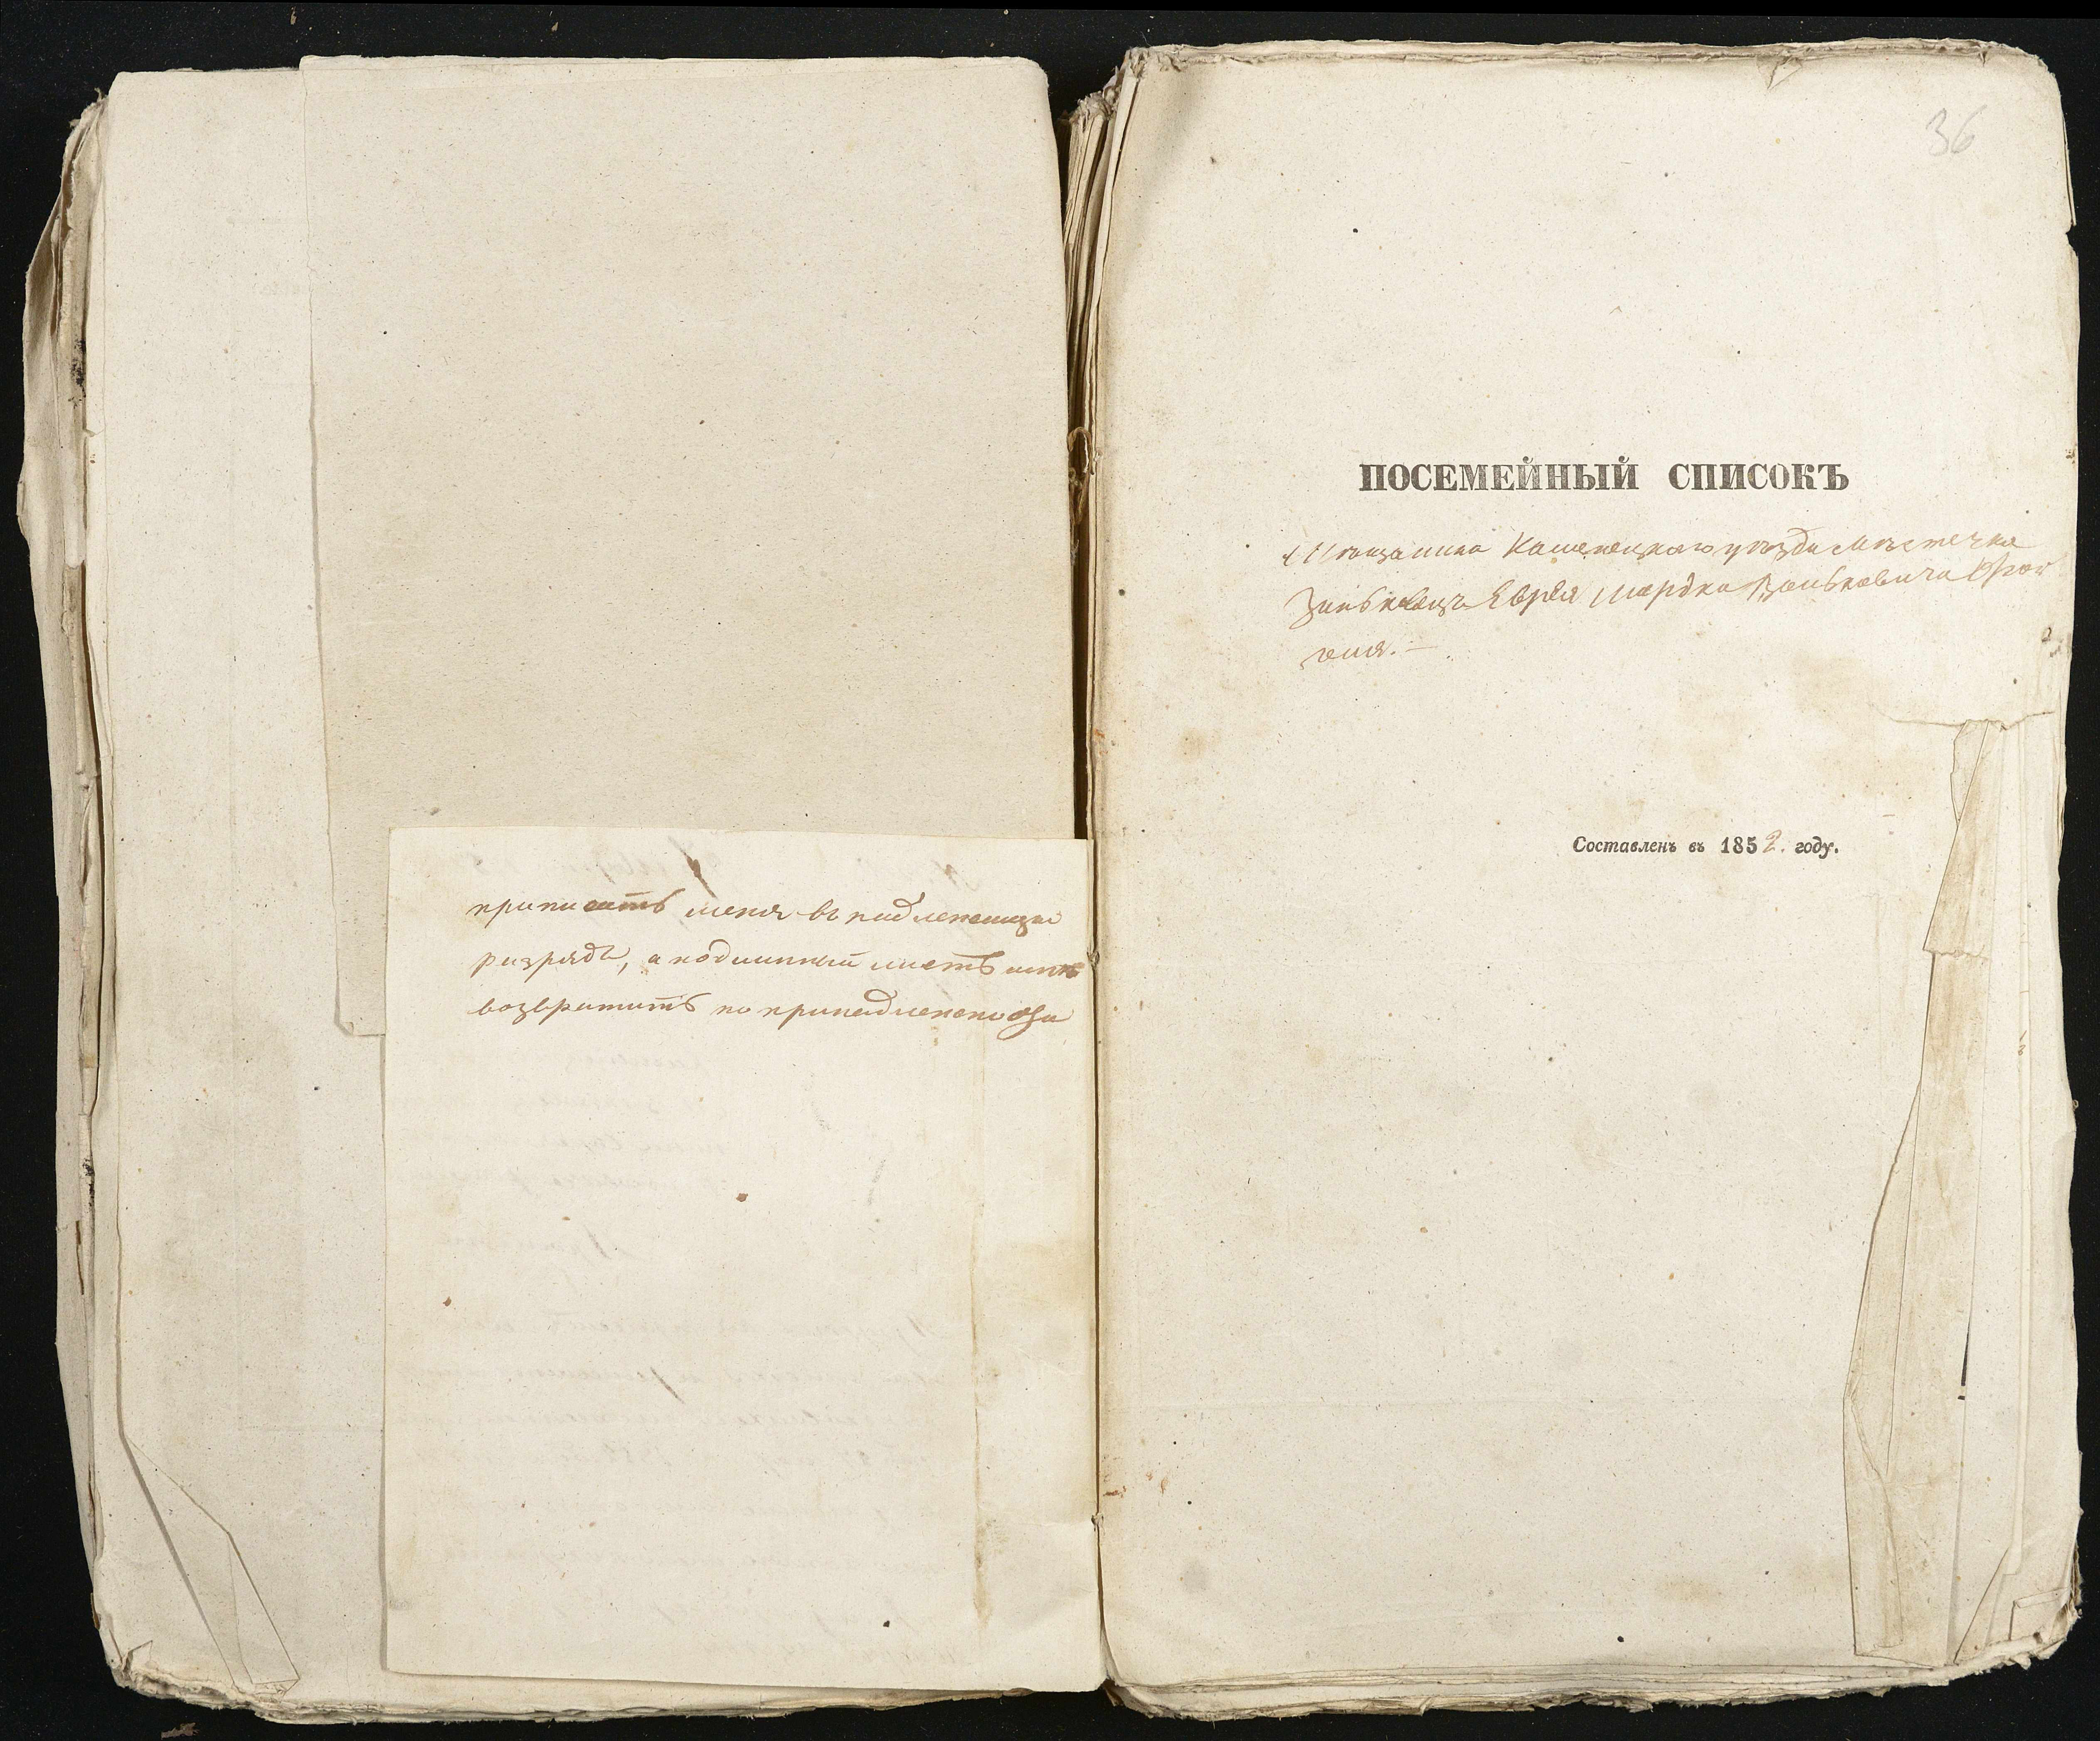 приписать меня въ надлежащи
разрядъ, а подлинный листъ мнѣ
возвратить по принадлежности
36
ПОСЕМЕЙНЫЙ СПИСОКЪ
Мѣщанина Каменецкаго уѣзда мѣстечка
Зиньковецъ Еврея Мордка
Составленъ въ 1852. году.